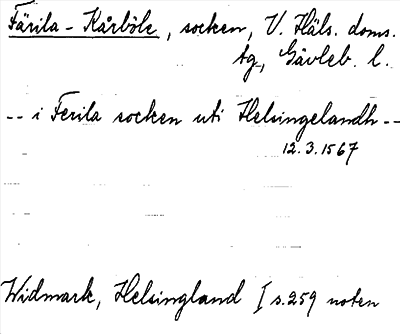 Färila - Kårböle, socken, V. Häls. doms.
tg, Gävleb. l.
-- i Ferila socken uti Helsingelandh --
12.3.1567
Widmark, Helsingland I s.259 noten